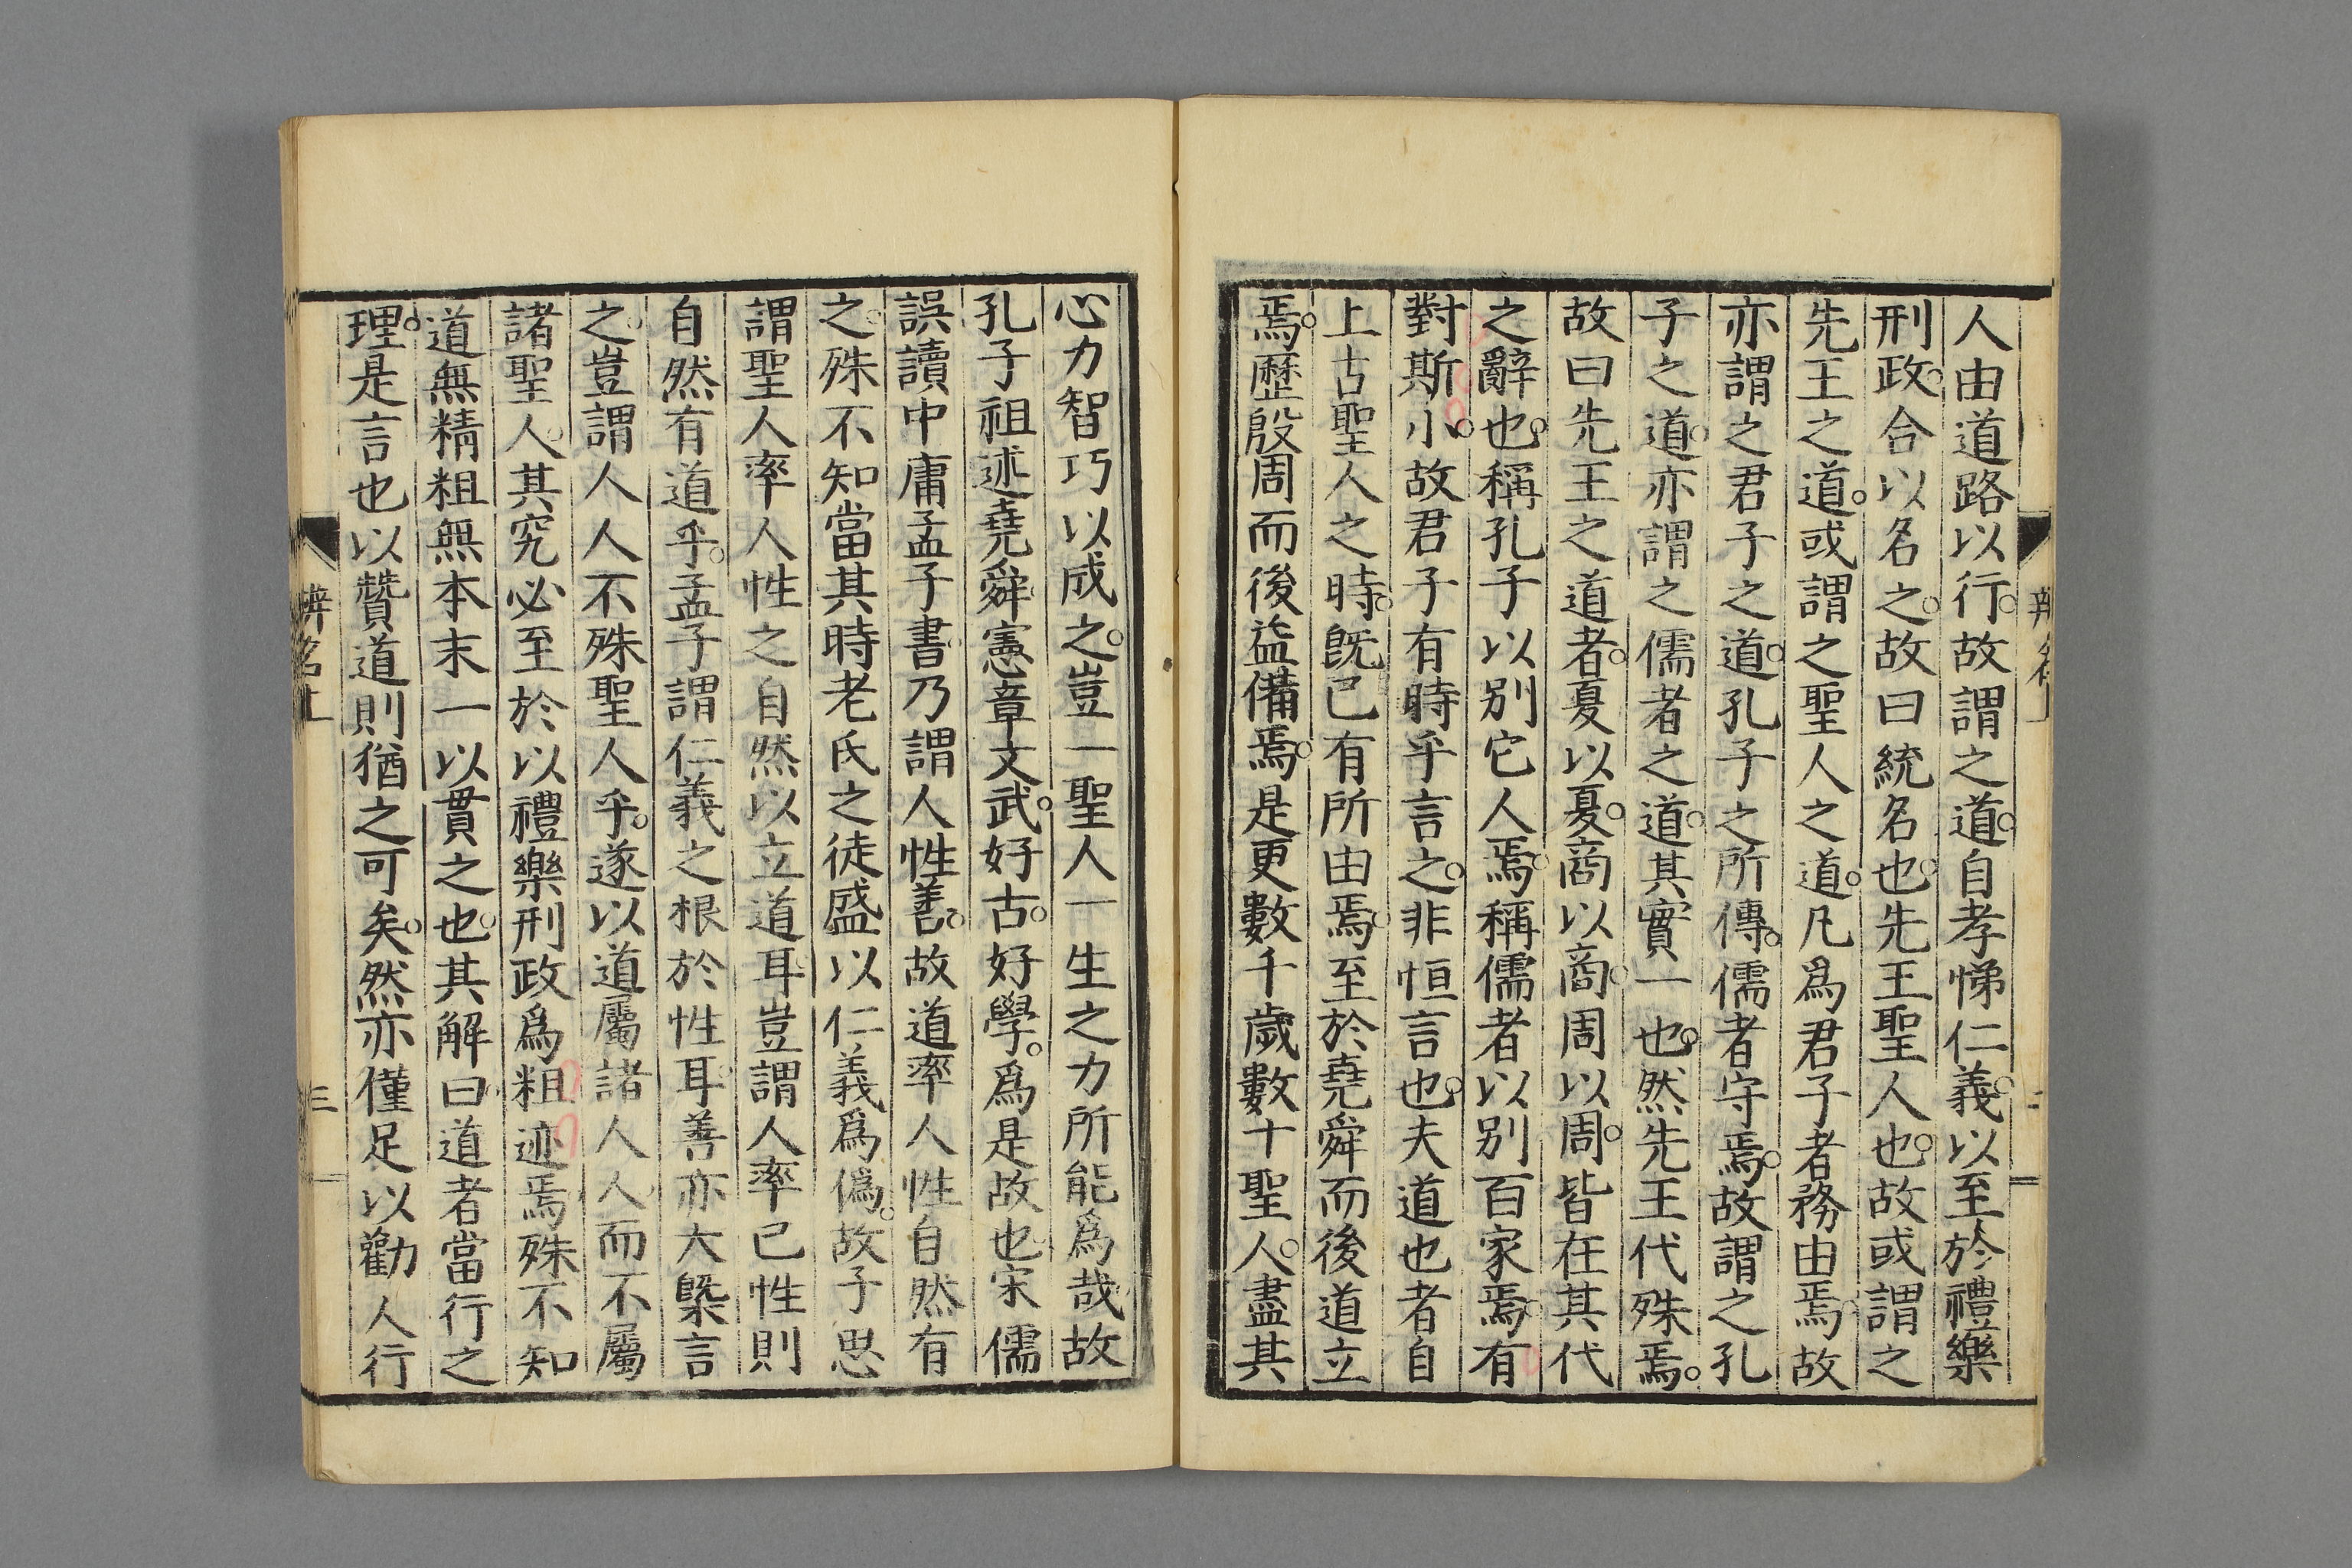 人由道路以行。故謂之道。自孝悌仁義。以至於禮樂
刑政。合以名之。故曰統名也。先王聖人也。故或謂之
先王之道。或謂之聖人之道。凡爲君子者務由焉。故
亦謂之君子之道。孔子之所傳。儒者守焉。故謂之孔
子之道。亦謂之儒者之道。其實一也。然先王代殊焉。
故曰先王之道者。夏以夏。商以商。周以周。皆在其代
之辭也。稱孔子以別它人焉。稱儒者以別百家焉。有
對斯小。故君子有時乎言之。非恒言也。夫道也者自
上古聖人之時。既已有所由焉。至於堯舜而後道立
焉。歷殷周而後益備焉。是更數千歲數十聖人。盡其
心力智巧以成之。豈一聖人一生之力所能爲哉。故
孔子祖述堯舜。憲章文武。好古。好學。爲是故也。宋儒
誤讀中庸孟子書。乃謂人性善。故道率人性自然有
之。殊不知當其時老氏之徒盛以仁義爲僞。故子思
謂聖人率人性之自然以立道耳。豈謂人率己性則
自然有道乎。孟子謂仁義之根於性耳。善亦大槩言
之。豈謂人人不殊聖人乎。遂以道屬諸人人。而不屬
諸聖人。其究必至於以禮樂刑政爲粗迹焉。殊不知
道無精粗無本末一以貫之也。其解曰。道者當行之
理。是言也以贊道則猶之可矣。然亦僅足以勸人行
辨名上
三
二